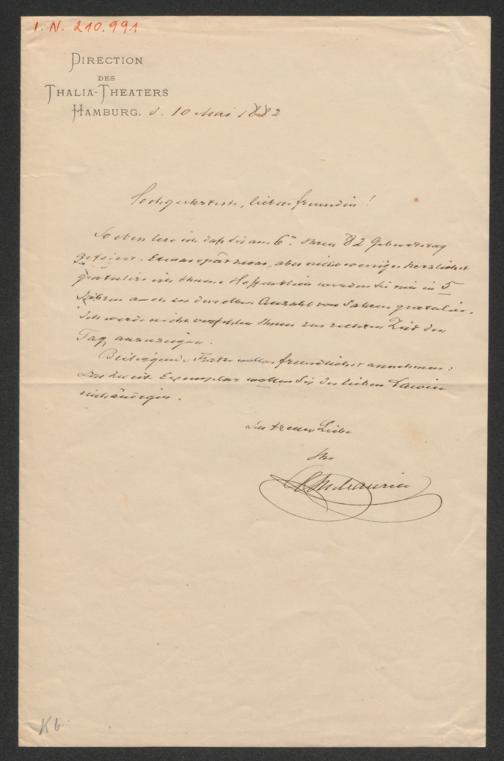 I. N. 210.991
DIRECTION
DES
THALIA-THEATERS
HAMBURG. d. 10 Mai 1882
Hochgeehrteste, liebe Freundin!
Soeben lese ich daß Sie am 6n Ihren 82 Geburtstag
gefeiert. Etwas spät zwar, aber nicht weniger herzlich
gratulire ich Ihnen. Hoffentlich werden Sie mir in 5
Jahren auch zu derselben Anzahl von Jahren gratuliren.
Ich werde nicht verfehlen Ihnen zur rechten Zeit den
Tag anzuzeigen.
Beiliegende wollen freundlichst annehmen;
das zweite Exemplar wollen Sie der lieben
einhändigen.
In treuer Liebe
Ihr
Ch Maurice
Kb